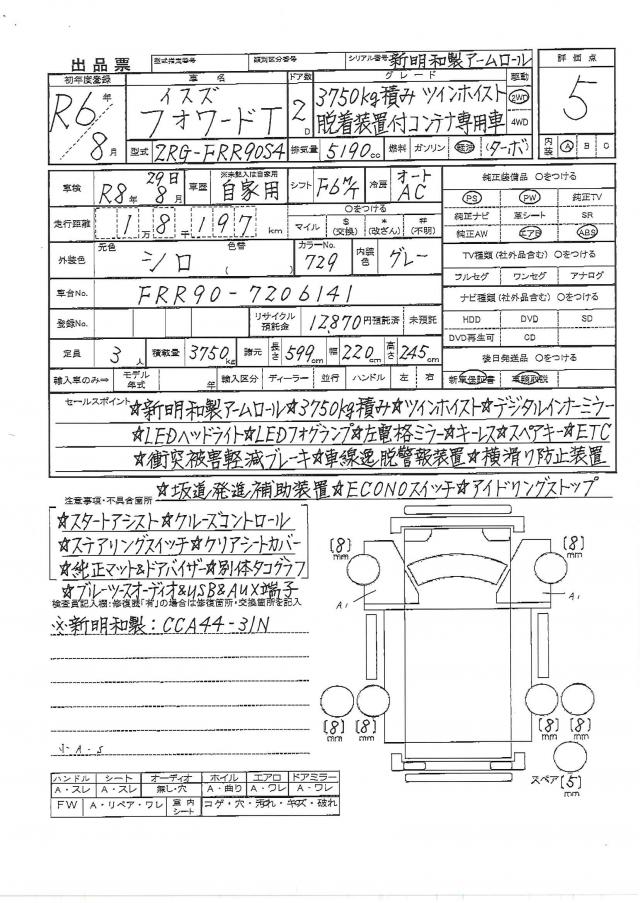 出品票 型式指定番号 類別区分番号 シリアル番号 新明和製アームロール
評価点
5
初年度登録 車名 ドア数 グレード 駆動
R6年 8月
イスズ
フォワードT
2D
3750kg積み ツインホイスト
脱着装置付コンテナ専用車
2WD
4WD
型式 2RG-FRR90S4 排気量 5190cc 燃料 ガソリン 軽油 (ターボ)
内装 A B C
車検 R8年 8月 29日 車歴 ※未記入は自家用 自家用 シフト F6M/T 冷房 オートAC
純正装備品 ○をつける
PS PW 純正TV
純正ナビ 革シート SR
純正AW エアB ABS
走行距離 1万8千197km ○をつける
マイル $(交換) *(改ざん) #(不明)
外装色 元色 シロ 色替 ( ) カラーNo. 729 内装色 グレー
TV種類(社外品含む) ○をつける
フルセグ ワンセグ アナログ
車台No. FRR90-7206141
ナビ種類(社外品含む) ○をつける
登録No. リサイクル預託金 12,870円預託済 未預託
HDD DVD SD
DVD再生可 CD
定員 3人 積載量 3750kg 諸元 長さ 599cm 幅 220cm 高さ 245cm
後日発送品 ○をつける
輸入車のみ⇒ モデル年式 年 輸入区分 ディーラー 並行 ハンドル 左 右
新車保証書 車輌取説
セールスポイント
☆新明和製アームロール☆3750kg積み☆ツインホイスト☆デジタルインナーミラー
☆LEDヘッドライト☆LEDフォグランプ☆左電格ミラー☆キーレス☆スペアキー☆ETC
☆衝突被害軽減ブレーキ☆車線逸脱警報装置☆横滑り防止装置
☆坂道発進補助装置☆ECONOスイッチ☆アイドリングストップ
注意事項・不具合箇所
☆スタートアシスト☆クルーズコントロール
☆ステアリングスイッチ☆クリアシートカバー
☆純正マット&ドアバイザー☆別体タコグラフ
☆ブルーツースオーディオ&USB&AUX端子
検査員記入欄:修復歴「有」の場合は修復箇所・交換箇所を記入
※新明和製:CCA44-31N
小A・S
[8]mm
[8]mm
A1
A1
[8]mm [8]mm
[8]mm [8]mm
スペア [5]mm
ハンドル シート オーディオ ホイル エアロ ドアミラー
A・スレ A・スレ 無し・穴 A・曲り A・ワレ A・ワレ
FW A・リペア・ワレ 室内シート コゲ・穴・汚れ・キズ・破れ